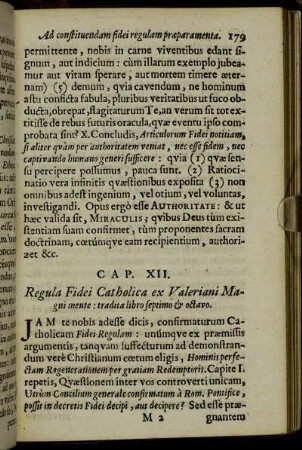 Ad constituendam fidei regulam præparamenta. 179
permittente, nobis in carne viventibus edant si-
gnum, aut indicium: cùm illarum exemplo jubea-
mur aut vitam sperare, aut mortem timere æter-
nam) (5) demum, qvia cavendum, ne hominum
astu conficta fabula, pluribus veritatibus ut fuco ob-
ducta, obrepat, flagitaturum Te, an verum sit tot ex-
titisse de rebus futuris oracula, qvæ eventu ipso com-
probata sint? X. Concludis, Articulorum Fidei notitiam,
si aliter quàm per authoritatem veniat, nec esse fidem, nec
captivando humano generi sufficere: qvia (1) quæ sen-
su percipere possumus, pauca sunt. (2) Ratioci-
natio vera infinitis quæstionibus exposita (3) non
omnibus adest ingenium, vel otium, vel voluntas,
investigandi. Opus ergò esse AUTHORITATE: & ut
hæc valida sit, MIRACULIS; qvibus Deus tùm exi-
stentiam suam confirmet, tùm proponentes sacram
doctrinam, cœtúmqve eam recipientium, authori-
zet &c.
CAP. XII.
Regula Fidei Catholica ex Valeriani Ma-
gni mente: tradita libro septimo & octavo.
JAM te nobis adesse dicis, confirmaturum Ca-
tholicam Fidei Regulam: unúmqve ex præmissis
argumentis, tanqvam suffecturum ad demonstran-
dum verè Christianum cœtum eligis, Hominis perfe-
ctam Regenerationem per gratiam Redemptoris. Capite I.
repetis, Qvæstionem inter vos controverti unicam,
Utrùm Concilium generale confirmatum à Rom. Pontifice,
possit in decretis Fidei decipi, aut decipere? Sed esse præ-
M 2 gnantem